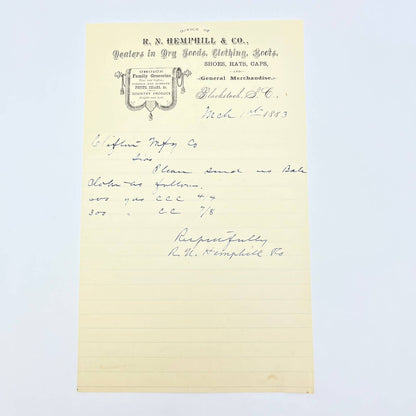 OFFICE OF
R. N. HEMPHILL & CO.,
Dealers in Dry Goods, Clothing, Boots,
SHOES, HATS, CAPS,
AND
General Merchandise.
CHOICE
Family Groceries
COUNTRY PRODUCE
Blackstock, S. C.,
Mch 1st 1883
Clifton Mfg Co
Sirs
Please send us Bale
Cloth as follows.
yds CCC 4-4
300 " CC 7/8
Respectfully
R. N. Hemphill & Co